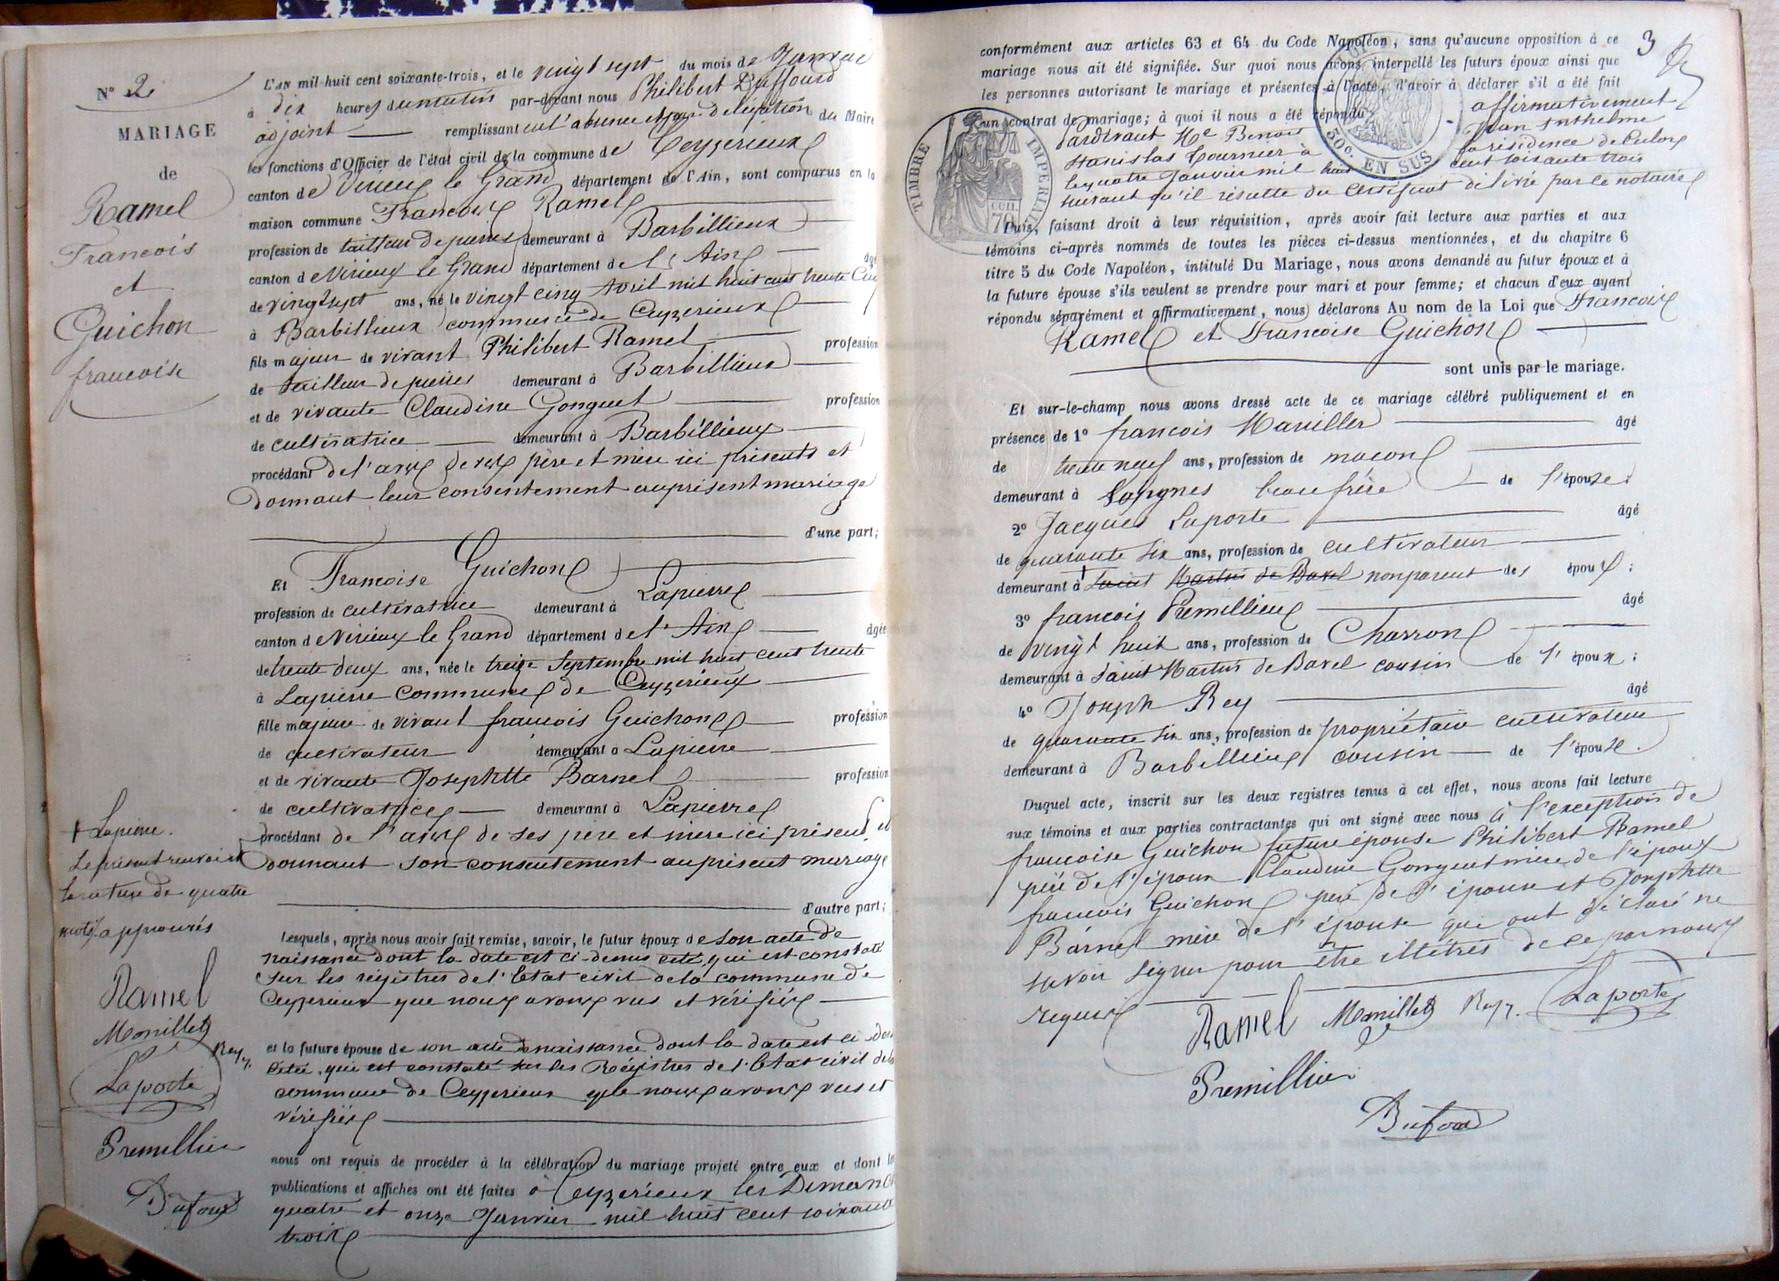 N° 2
MARIAGE
de
Ramel
François
et
Guichon
francoise
L'AN mil-huit cent soixante-trois, et le vingt sept du mois de Janvier
à dix heures du matin par-devant nous Philibert Duffourd
adjoint remplissant en l'absence et par délégation du Maire
les fonctions d'Officier de l'état civil de la commune de Ceyzerieux
canton de Virieux le Grand département de l'Ain, sont comparus en la
maison commune François Ramel
profession de tailleur de pierres demeurant à Barbillieux
canton de Virieux le Grand département de l'Ain âgé
de vingt sept ans, né le vingt cinq Avril mil huit cent trente cinq
à Barbillieux commune de Ceyzerieux
fils majeur de vivant Philibert Ramel profession
de tailleur de pierres demeurant à Barbillieux
et de vivante Claudine Gonguet profession
de cultivatrice demeurant à Barbillieux
procédant de l'avis de ses père et mère ici présents et
donnant leur consentement au présent mariage
d'une part;
Et Francoise Guichon
profession de cultivatrice demeurant à Lapierre
canton de Virieux le Grand département de l'Ain âgée
de trente deux ans, née le treize Septembre mil huit cent trente
à Lapierre commune de Ceyzerieux
fille majeure de vivant francois Guichon profession
de cultivateur demeurant à Lapierre
et de vivante Josephtte Barnel profession
de cultivatrice demeurant à Lapierre
procédant de l'avis de ses pere et mère ici présent et
donnant son consentement au présent mariage
d'autre part;
Lesquels, après nous avoir fait remise, savoir, le futur époux de son acte de
naissance dont la date est ci-dessus citée, qui est constaté
sur les registres de l'Etat civil de la commune de
Ceyzerieux que nous avons vus et vérifiés
et la future épouse de son acte de naissance dont la date est ci-des
citée, qui est constaté sur les Régistres de l'Etat civil de la
commune de Ceyzerieux que nous avons vus et
vérifiés
nous ont requis de procéder à la célébration du mariage projeté entre eux et dont les
publications et affiches ont été faites à Ceyzerieux les Dimanch
quatre et onze Janvier mil huit cent soixante
trois
+ Lapierre.
Le présent renvoi et
la rature de quatre
mots approuvés
Ramel
Monillet
Rey.
Laporte
Premillieu
Dufour
3
conformément aux articles 63 et 64 du Code Napoléon, sans qu'aucune opposition à ce
mariage nous ait été signifiée. Sur quoi nous avons interpellé les futurs époux ainsi que
les personnes autorisant le mariage et présentes à l'acte, d'avoir à déclarer s'il a été fait
un contrat de mariage; à quoi il nous a été répondu affirmativement
pardevant Me Benoit Jean Anthelme
Stanislas Tournier à la résidence de Culoz
le quatre Janvier mil huit cent soixante trois
suivant qu'il résulte du certificat délivré par ce notaire
TIMBRE IMPERIAL
70
50c. EN SUS
Puis, faisant droit à leur réquisition, après avoir fait lecture aux parties et aux
témoins ci-après nommés de toutes les pièces ci-dessus mentionnées, et du chapitre 6
titre 5 du Code Napoléon, intitulé Du Mariage, nous avons demandé au futur époux et à
la future épouse s'ils veulent se prendre pour mari et pour femme; et chacun d'eux ayant
répondu séparément et affirmativement, nous déclarons Au nom de la Loi que Francois
Ramel et Francoise Guichon
sont unis par le mariage.
Et sur-le-champ nous avons dressé acte de ce mariage célébré publiquement et en
présence de 1° francois âgé
de trente neuf ans, profession de macon
demeurant à beau frère de l'épouse;
2° Jacques Laporte âgé
de quarante six ans, profession de cultivateur
demeurant à + Saint Martin de Bavel non parent des époux;
3° francois Premillieux âgé
de vingt huit ans, profession de Charron
demeurant à Saint Martin de Bavel cousin de l'époux;
4° Joseph Rey âgé
de quarante six ans, profession de propriétaire cultivateur
demeurant à Barbillieux cousin de l'épouse.
Duquel acte, inscrit sur les deux registres tenus à cet effet, nous avons fait lecture
aux témoins et aux parties contractantes qui ont signé avec nous à l'exception de
francoise Guichon future épouse Philibert Ramel
père de l'époux Claudine Gonguet mère de l'époux
francois Guichon père de l'épouse et Josephtte
Barnel mère de l'épouse qui ont déclaré ne
savoir signer pour être illétrés de ce par nous
requis
Ramel Monillet Rey. Laporte
Premillieu
Dufour